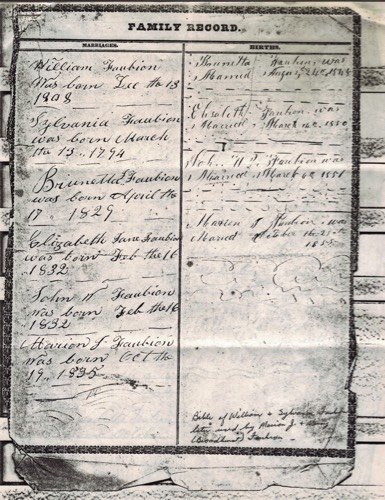 FAMILY RECORD.
MARRIAGES.
BIRTHS.
William Faubion
Was born Dec the 13
1808
Sylvania Faubion
was born March
the 15. 1794
Brunetta Faubion
was born April the
17. 1829
Elizabeth Jane Faubion
was born Feb the 16
1832
John W Faubion
was born Feb the 16
1832
Marion J. Faubion
was born Oct the
19. 1835
Brunetta Faubion. was
Married August 24th. 1848
Elizabeth Faubion. was
Married March 1850
John W. Faubion was
Married March 6th 1851
Marion J Faubion. was
Maried October the 25th
1855
Bible of William & Sylvania Faubion
later used by Marion J. &
(Broadhurst) Faubion